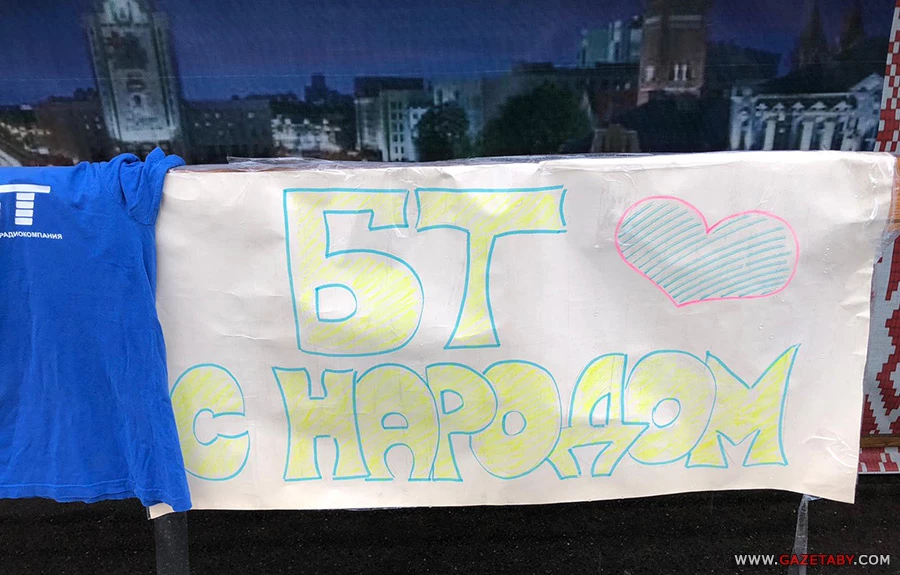 БТ
С НАРОДОМ
WWW.GAZETABY.COM